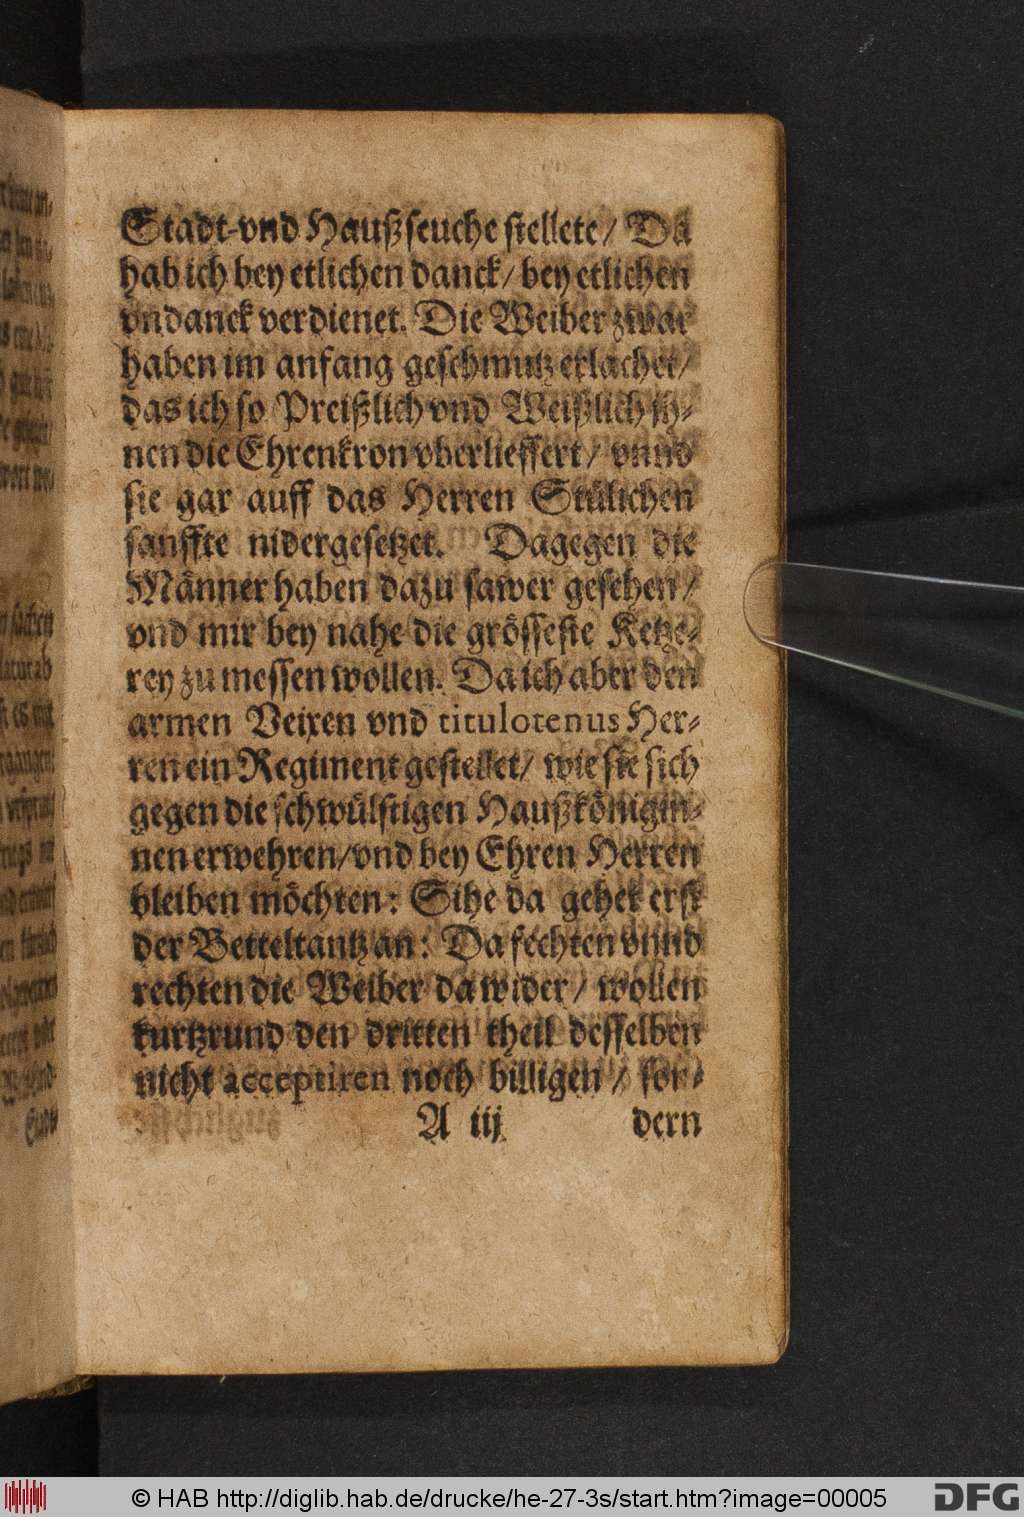 Stadt-vnd Haußseuche stellete/ Da
hab ich bey etlichen danck/ bey etlichen
vndanck verdienet. Die Weiber zwar
haben im anfang geschmutzerlachet/
das ich so Preißlich vnd Weißlich ih-
nen die Ehrenkron vberlieffert/ vnnd
sie gar auff das Herren Stülichen
sanffte nidergesetzet. Dagegen die
Männer haben dazu sawer gesehen/
vnd mir bey nahe die grösseste Ketze-
rey zu messen wollen. Da ich aber den
armen Veixen vnd titulotenus Her-
ren ein Regiment gestellet/ wie sie sich
gegen die schwülstigen Haußkönigin-
nen erwehren/vnd bey Ehren Herren
bleiben möchten: Sihe da gehet erst
der Betteltantz an: Da fechten vnnd
rechten die Weiber dawider/ wollen
kurtzrund den dritten theil desselben
nicht acceptiren noch billigen/ for-
A iij dern
© HAB http://diglib.hab.de/drucke/he-27-3s/start.htm?image=00005
DFG